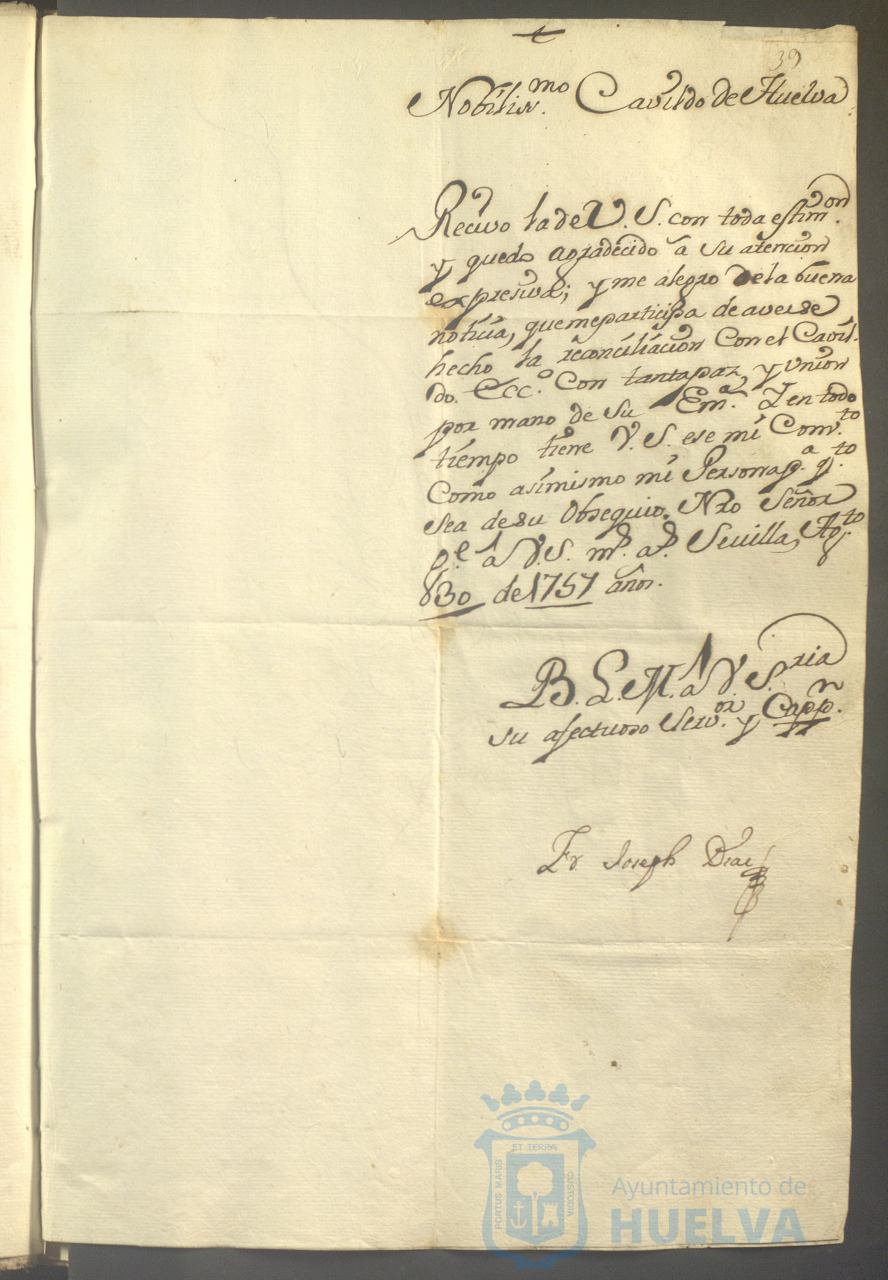 39
Nobiliss.mo Cavildo de Huelva
Recivo la de V. S. con toda estim.on
y quedo agradecido a su atencion
expresiva; y me alegro de la buena
noticia, que me participa de averse
hecho la reconciliacion Con el Cavil-
do. Ecc.o Con tanta paz, y union
por mano de su Em.a Y en todo
tiempo tiene V. S. ese mi Conv.to
Como asimismo mi Persona p.a q.to
sea de su Obsequio. Nro Señor
g.e a V. S. m.s a.s Sevilla, Ag.to
30 de 1757 años.
B. L. M. a V. S.ria
su afectuoso Serv.or y Capp.n
Fr Joseph Diaz
PORTUS MARIS
ET TERRÆ
CUSTODIA
Ayuntamiento de
HUELVA